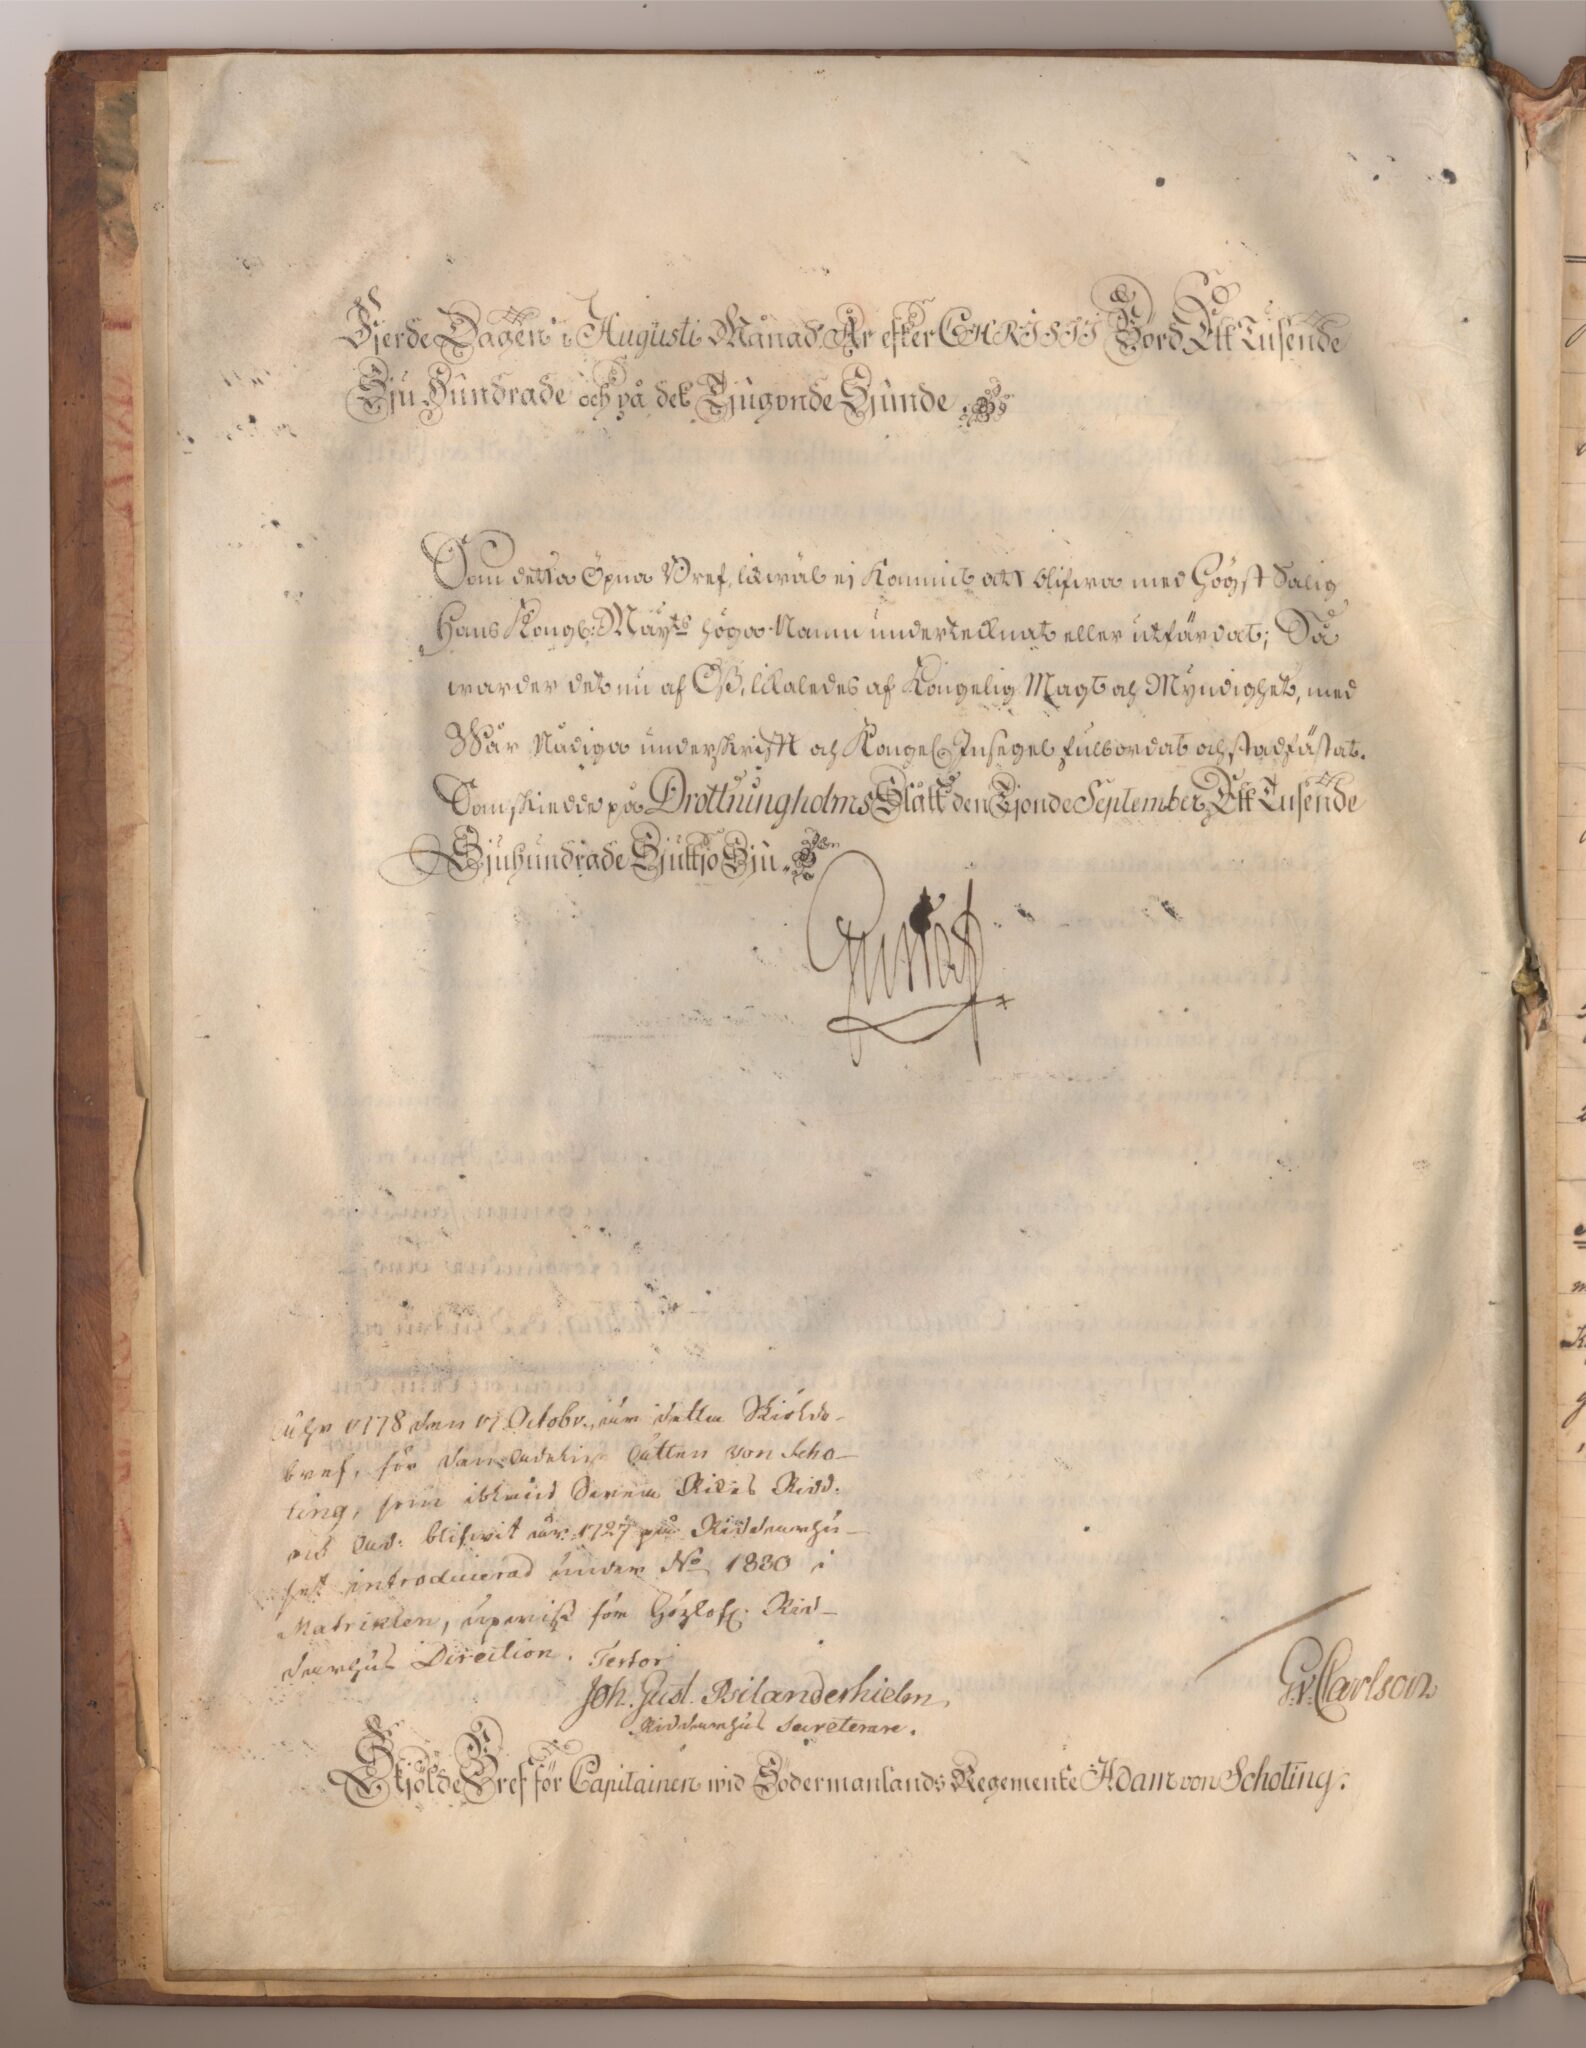 Fjerde Dagen i Augusti Månad År efter CHRISTI Bord Ett Tusende
Sju Hundrade och på det Tjugonde Sjunde.
Som detta Öpna Bref, likwäl ej Kommit att blifwa med Högst Salig
Hans Kongl: Maij:ts höga Namn underteknat eller utfärdat; Så
warder det nu af Oß, likaledes af Kongelig Magt och Myndighet, med
Wår Nådiga underskrift och Kongel. Insegel fulbordat och stadfästat.
Som skiedde på Drottningholms Slått den Tjonde September Ett Tusende
Sjuhundrade Sjuttjo Sju.
Gustaf
Åhr 1778 den 17 Octobr., är detta Skiölde-
bref, för den Adelige Ätten von Scho-
ting, som ibland Svea Rikes Ridd.
och Ad: blifwit år 1727 på Riddarehu-
set introducerad under No 1830 i
Matriklen, upwist för Höglofl. Rid-
darehus Direction. Testor
Joh. Gust. Psilanderhielm,
Riddarehus Secreterare.
G. v. Carlson
Skjölde Bref för Capitainen wid Södermanlands Regemente Adam von Schoting.